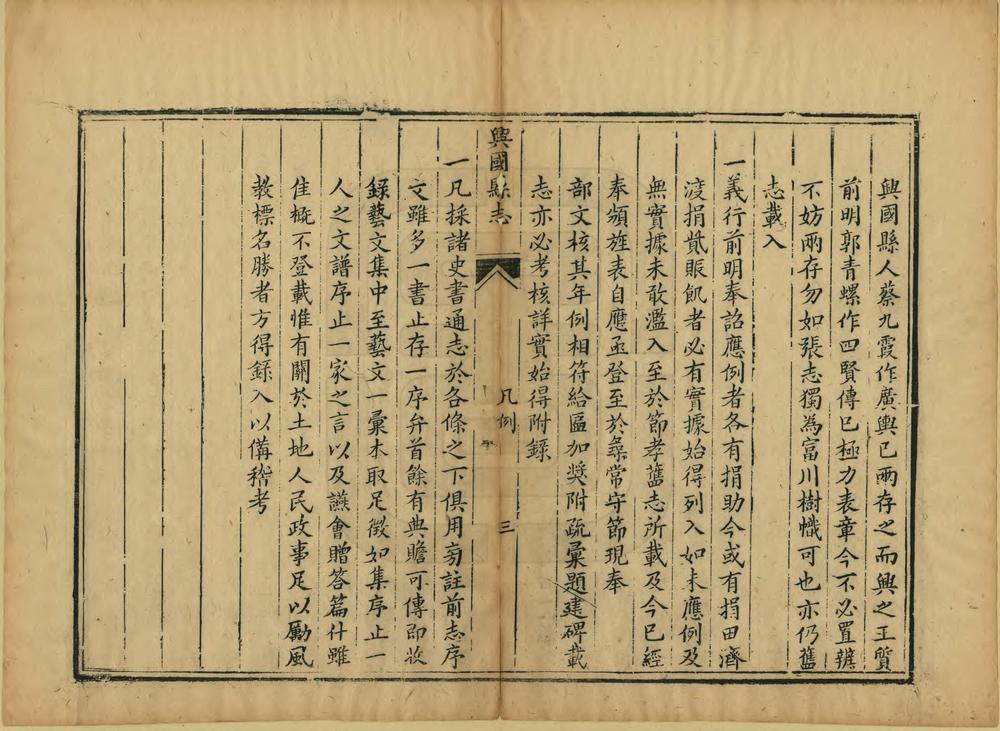 興國縣人蔡九霞作廣輿已兩存之而興之王質
前明郭青螺作四賢傳已極力表章今不必置辯
不妨兩存勿如張志獨為富川樹幟可也亦仍舊
志載入
一義行前明奉詔應例者各有捐助今或有捐田濟
渡捐貲賑飢者必有實據始得列入如未應例及
無實據未敢濫入至於節孝舊志所載及今已經
奉頒旌表自應亟登至於尋常守節現奉
部文核其年例相符給匾加奬附疏彙題建碑載
志亦必考核詳實始得附錄
興國縣志
凡例
三
一凡採諸史書通志於各條之下俱用旁註前志序
文雖多一書止存一序弁首餘有典贍可傳即收
錄藝文集中至藝文一彙本取足徵如集序止一
人之文譜序止一家之言以及讌會贈答篇什雖
佳概不登載惟有關於土地人民政事足以勵風
教標名勝者方得錄入以備稽考